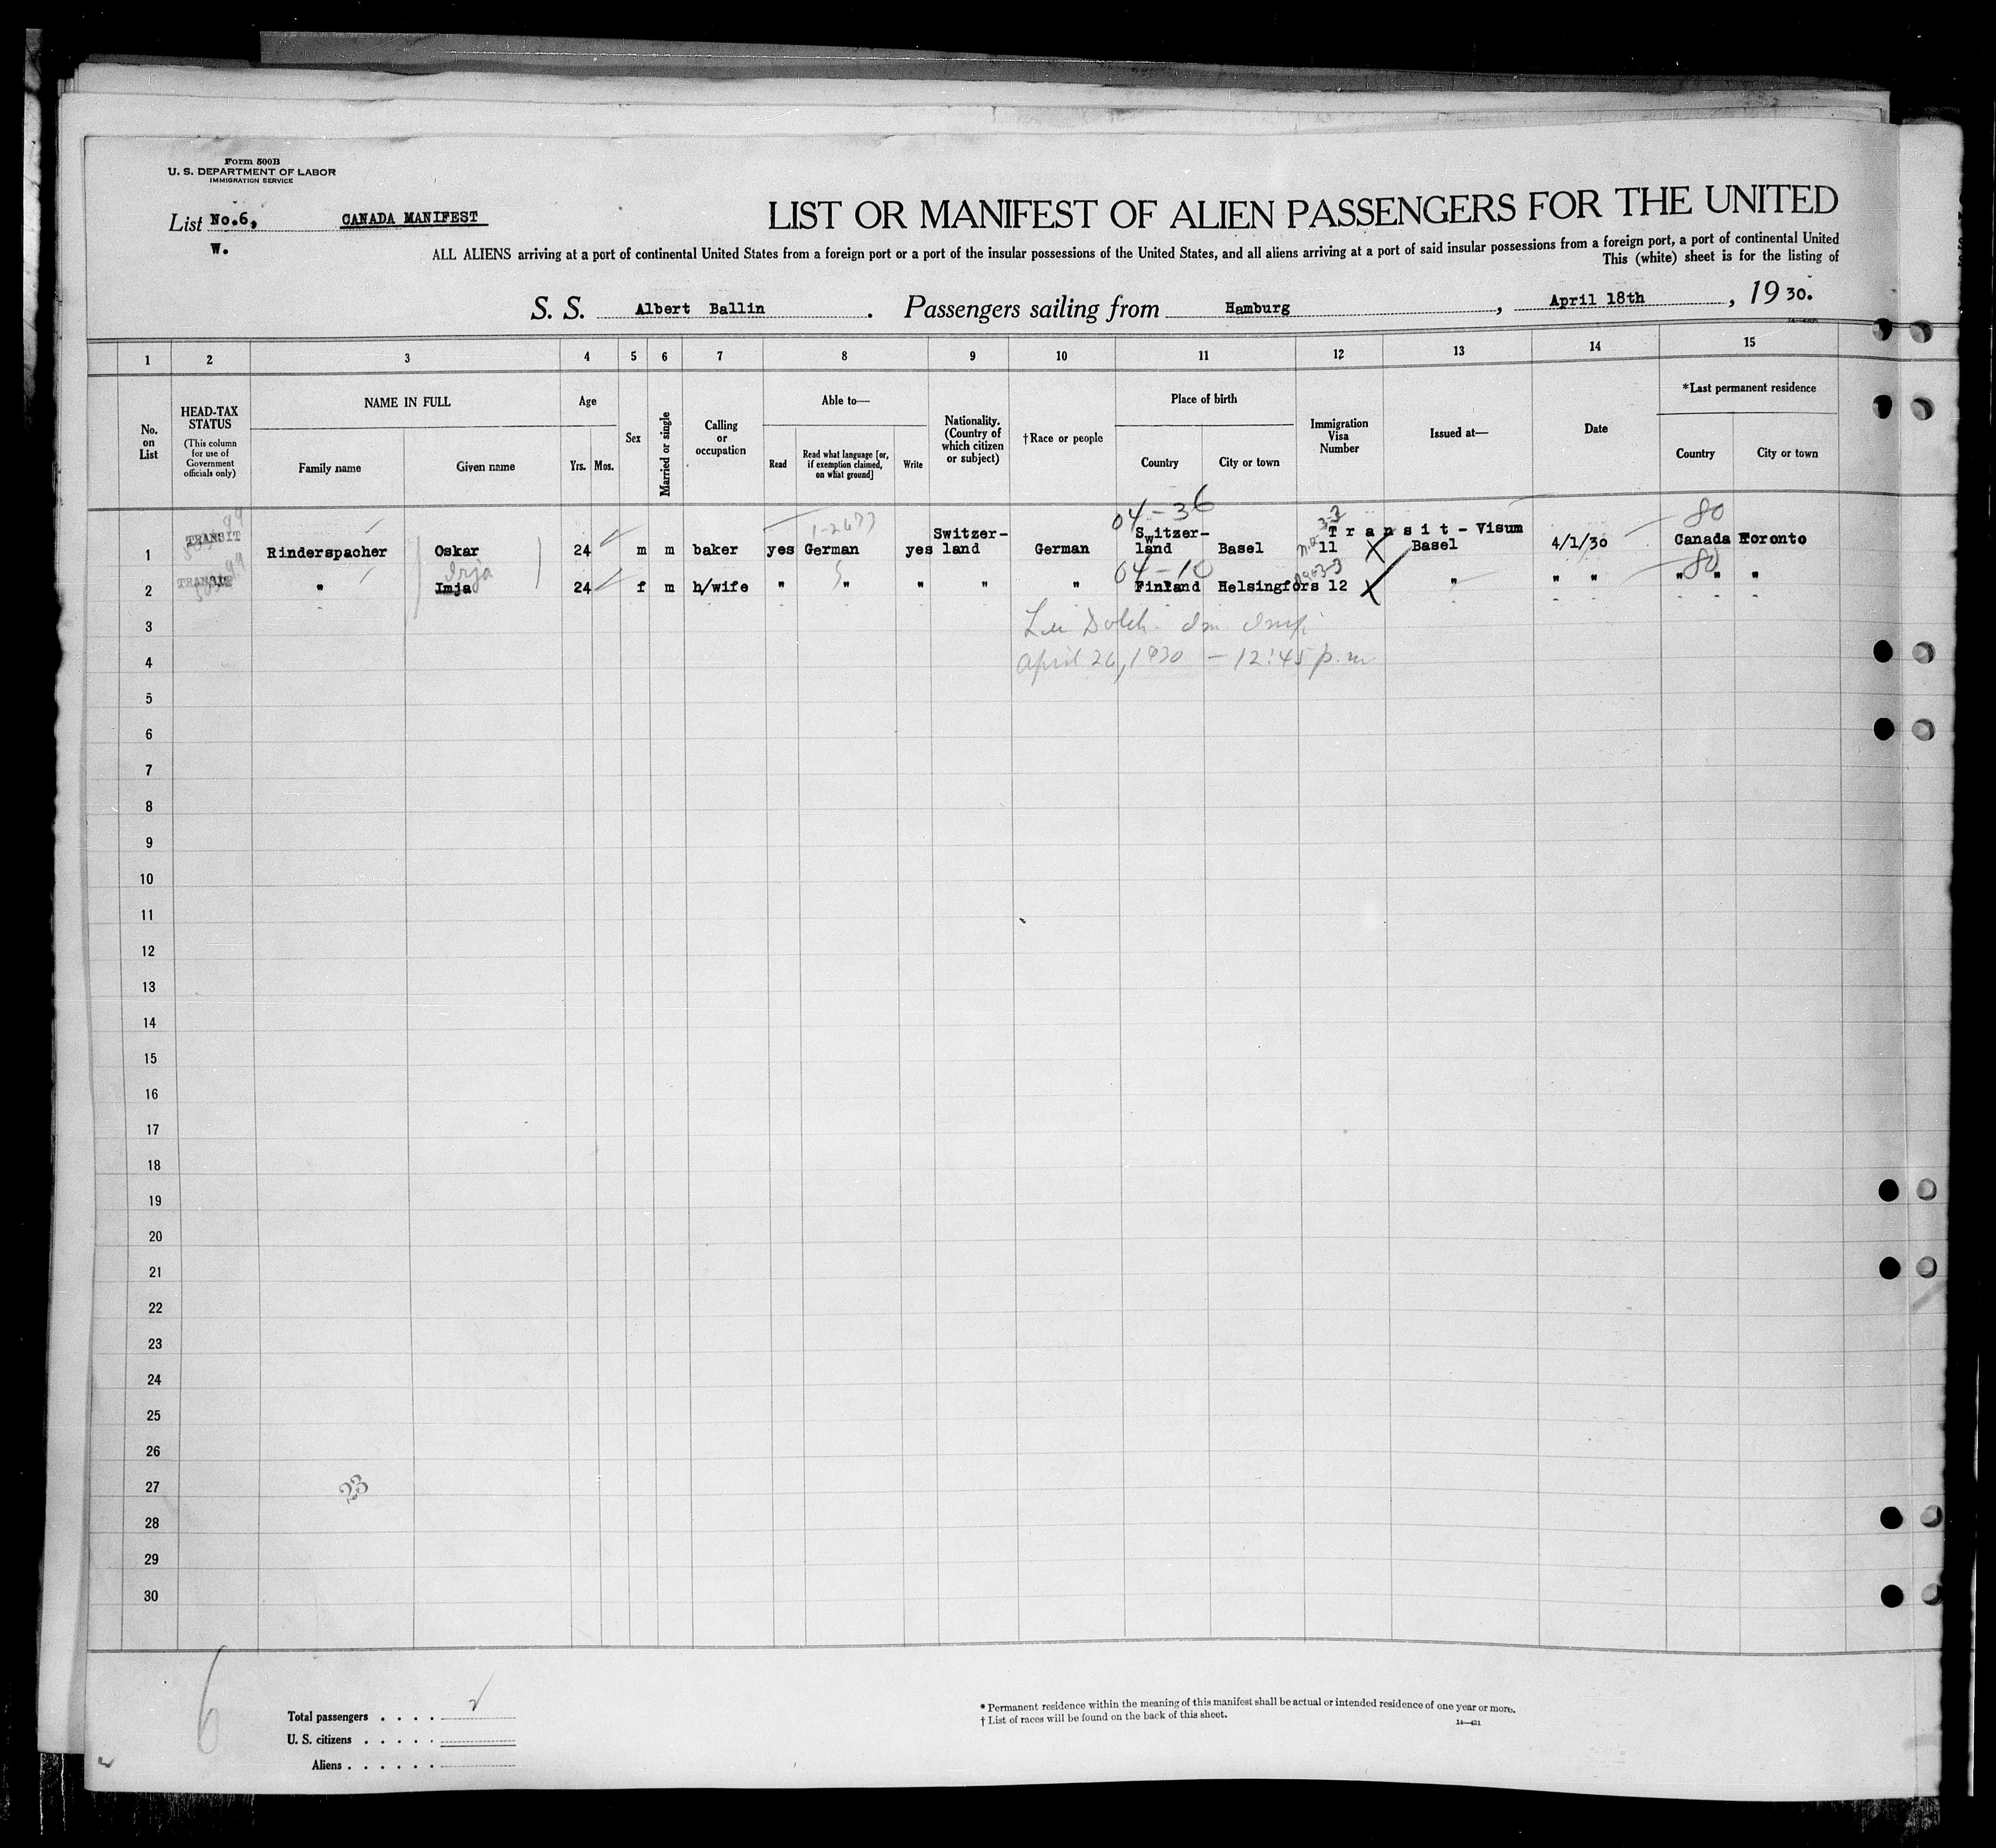 Form 500B
U. S. DEPARTMENT OF LABOR
IMMIGRATION SERVICE
List No.6, CANADA MANIFEST
W.
LIST OR MANIFEST OF ALIEN PASSENGERS FOR THE UNITED
ALL ALIENS arriving at a port of continental United States from a foreign port or a port of the insular possessions of the United States, and all aliens arriving at a port of said insular possessions from a foreign port, a port of continental United
This (white) sheet is for the listing of
S. S. Albert Ballin . Passengers sailing from Hamburg , April 18th , 19 30.
1 2 3 4 5 6 7 8 9 10 11 12 13 14 15
No. on List
HEAD-TAX STATUS
(This column for use of Government officials only)
NAME IN FULL
Family name Given name
Age
Yrs. Mos.
Sex
Married or single
Calling or occupation
Able to—
Read
Read what language [or, if exemption claimed, on what ground]
Write
Nationality. (Country of which citizen or subject)
†Race or people
Place of birth
Country City or town
Immigration Visa Number
Issued at—
Date
*Last permanent residence
Country City or town
04-36 3-3 80
1 TRANSIT Rinderspacher Oskar 24 m m baker yes German yes Switzer-land German Switzer-land Basel 11 Transit-Visum Basel 4/1/30 Canada Toronto
Irja 04-10 80
2 TRANSIT " Imja 24 f m h/wife " " " " " Finland Helsingfors 12 " " " " " "
3
4 April 26, 1930 - 12:45 p.m
5
6
7
8
9
10
11
12
13
14
15
16
17
18
19
20
21
22
23
24
25
26
27 23
28
29
30
6
Total passengers . . . . 2
U. S. citizens . . . . .
Aliens . . . . . .
* Permanent residence within the meaning of this manifest shall be actual or intended residence of one year or more.
† List of races will be found on the back of this sheet.